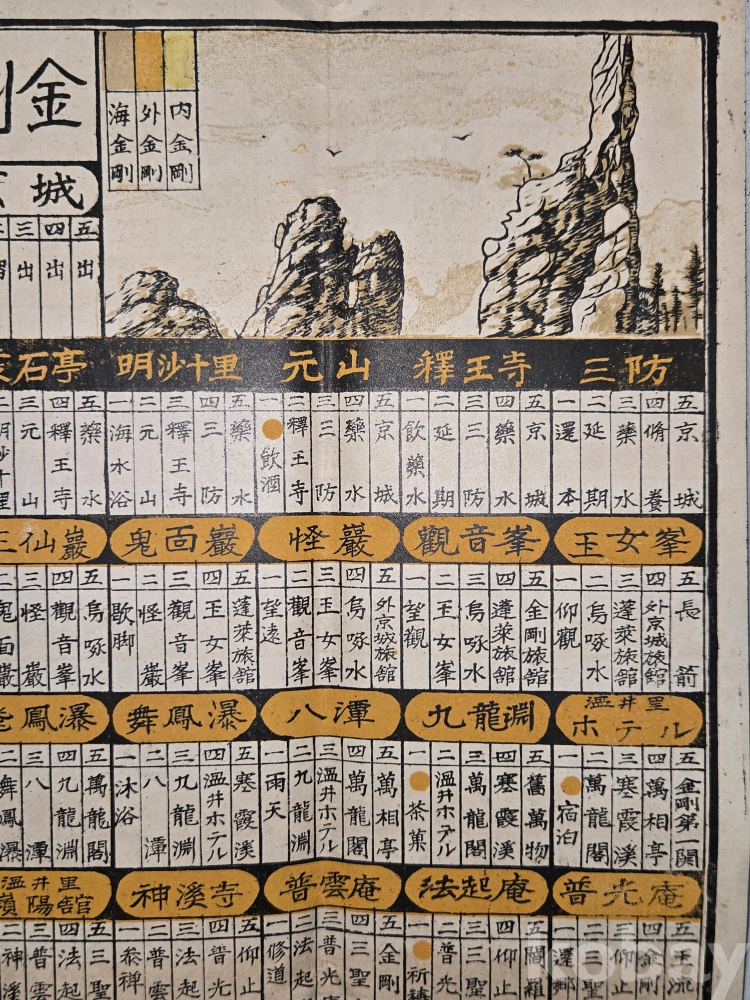 金
海金剛
外金剛
内金剛
城
三 出
四 出
五 出
石亭
明沙十里
元山
釋王寺
三防
明沙十里
三 元山
四 釋王寺
五 藥水
一 海水浴
二 元山
三 釋王寺
四 三防
五 藥水
一 飲酒
二 釋王寺
三 三防
四 藥水
五 京城
一 飲藥水
二 延期
三 三防
四 藥水
五 京城
一 還本
二 延期
三 藥水
四 脩養
五 京城
仙巖
鬼面巖
怪巖
觀音峯
玉女峯
二 鬼面巖
三 怪巖
四 觀音峯
五 烏啄水
一 歇脚
二 怪巖
三 觀音峯
四 玉女峯
五 蓬萊旅舘
一 望遠
二 觀音峯
三 玉女峯
四 烏啄水
五 外京城旅舘
一 望觀
二 玉女峯
三 烏啄水
四 蓬萊旅舘
五 金剛旅舘
一 仰觀
二 烏啄水
三 蓬萊旅舘
四 外京城旅舘
五 長箭
鳳瀑
舞鳳瀑
八潭
九龍淵
溫井里
ホテル
二 舞鳳瀑
三 八潭
四 九龍淵
五 萬龍閣
一 沐浴
二 八潭
三 九龍淵
四 溫井ホテル
五 寒霞溪
一 雨天
二 九龍淵
三 溫井ホテル
四 萬龍閣
五 萬相亭
一 茶菓
二 溫井ホテル
三 萬龍閣
四 寒霞溪
五 舊萬物
一 宿泊
二 萬龍閣
三 寒霞溪
四 萬相亭
五 金剛第一關
溫井里
嶺陽舘
神溪寺
普雲庵
法起庵
普光庵
二 神溪
三 普雲
四 法起
五 三聖
一 叅禅
二 普雲
三 法起
四 普光
五 仰止
一 修道
二 法起
三 普光
四 三聖
五 金剛
一 祈禱
二 普光
三 三聖
四 仰止
五 閻羅
一 還鄉
二 三聖
三 仰止
四 金剛
五 玉流
kobay